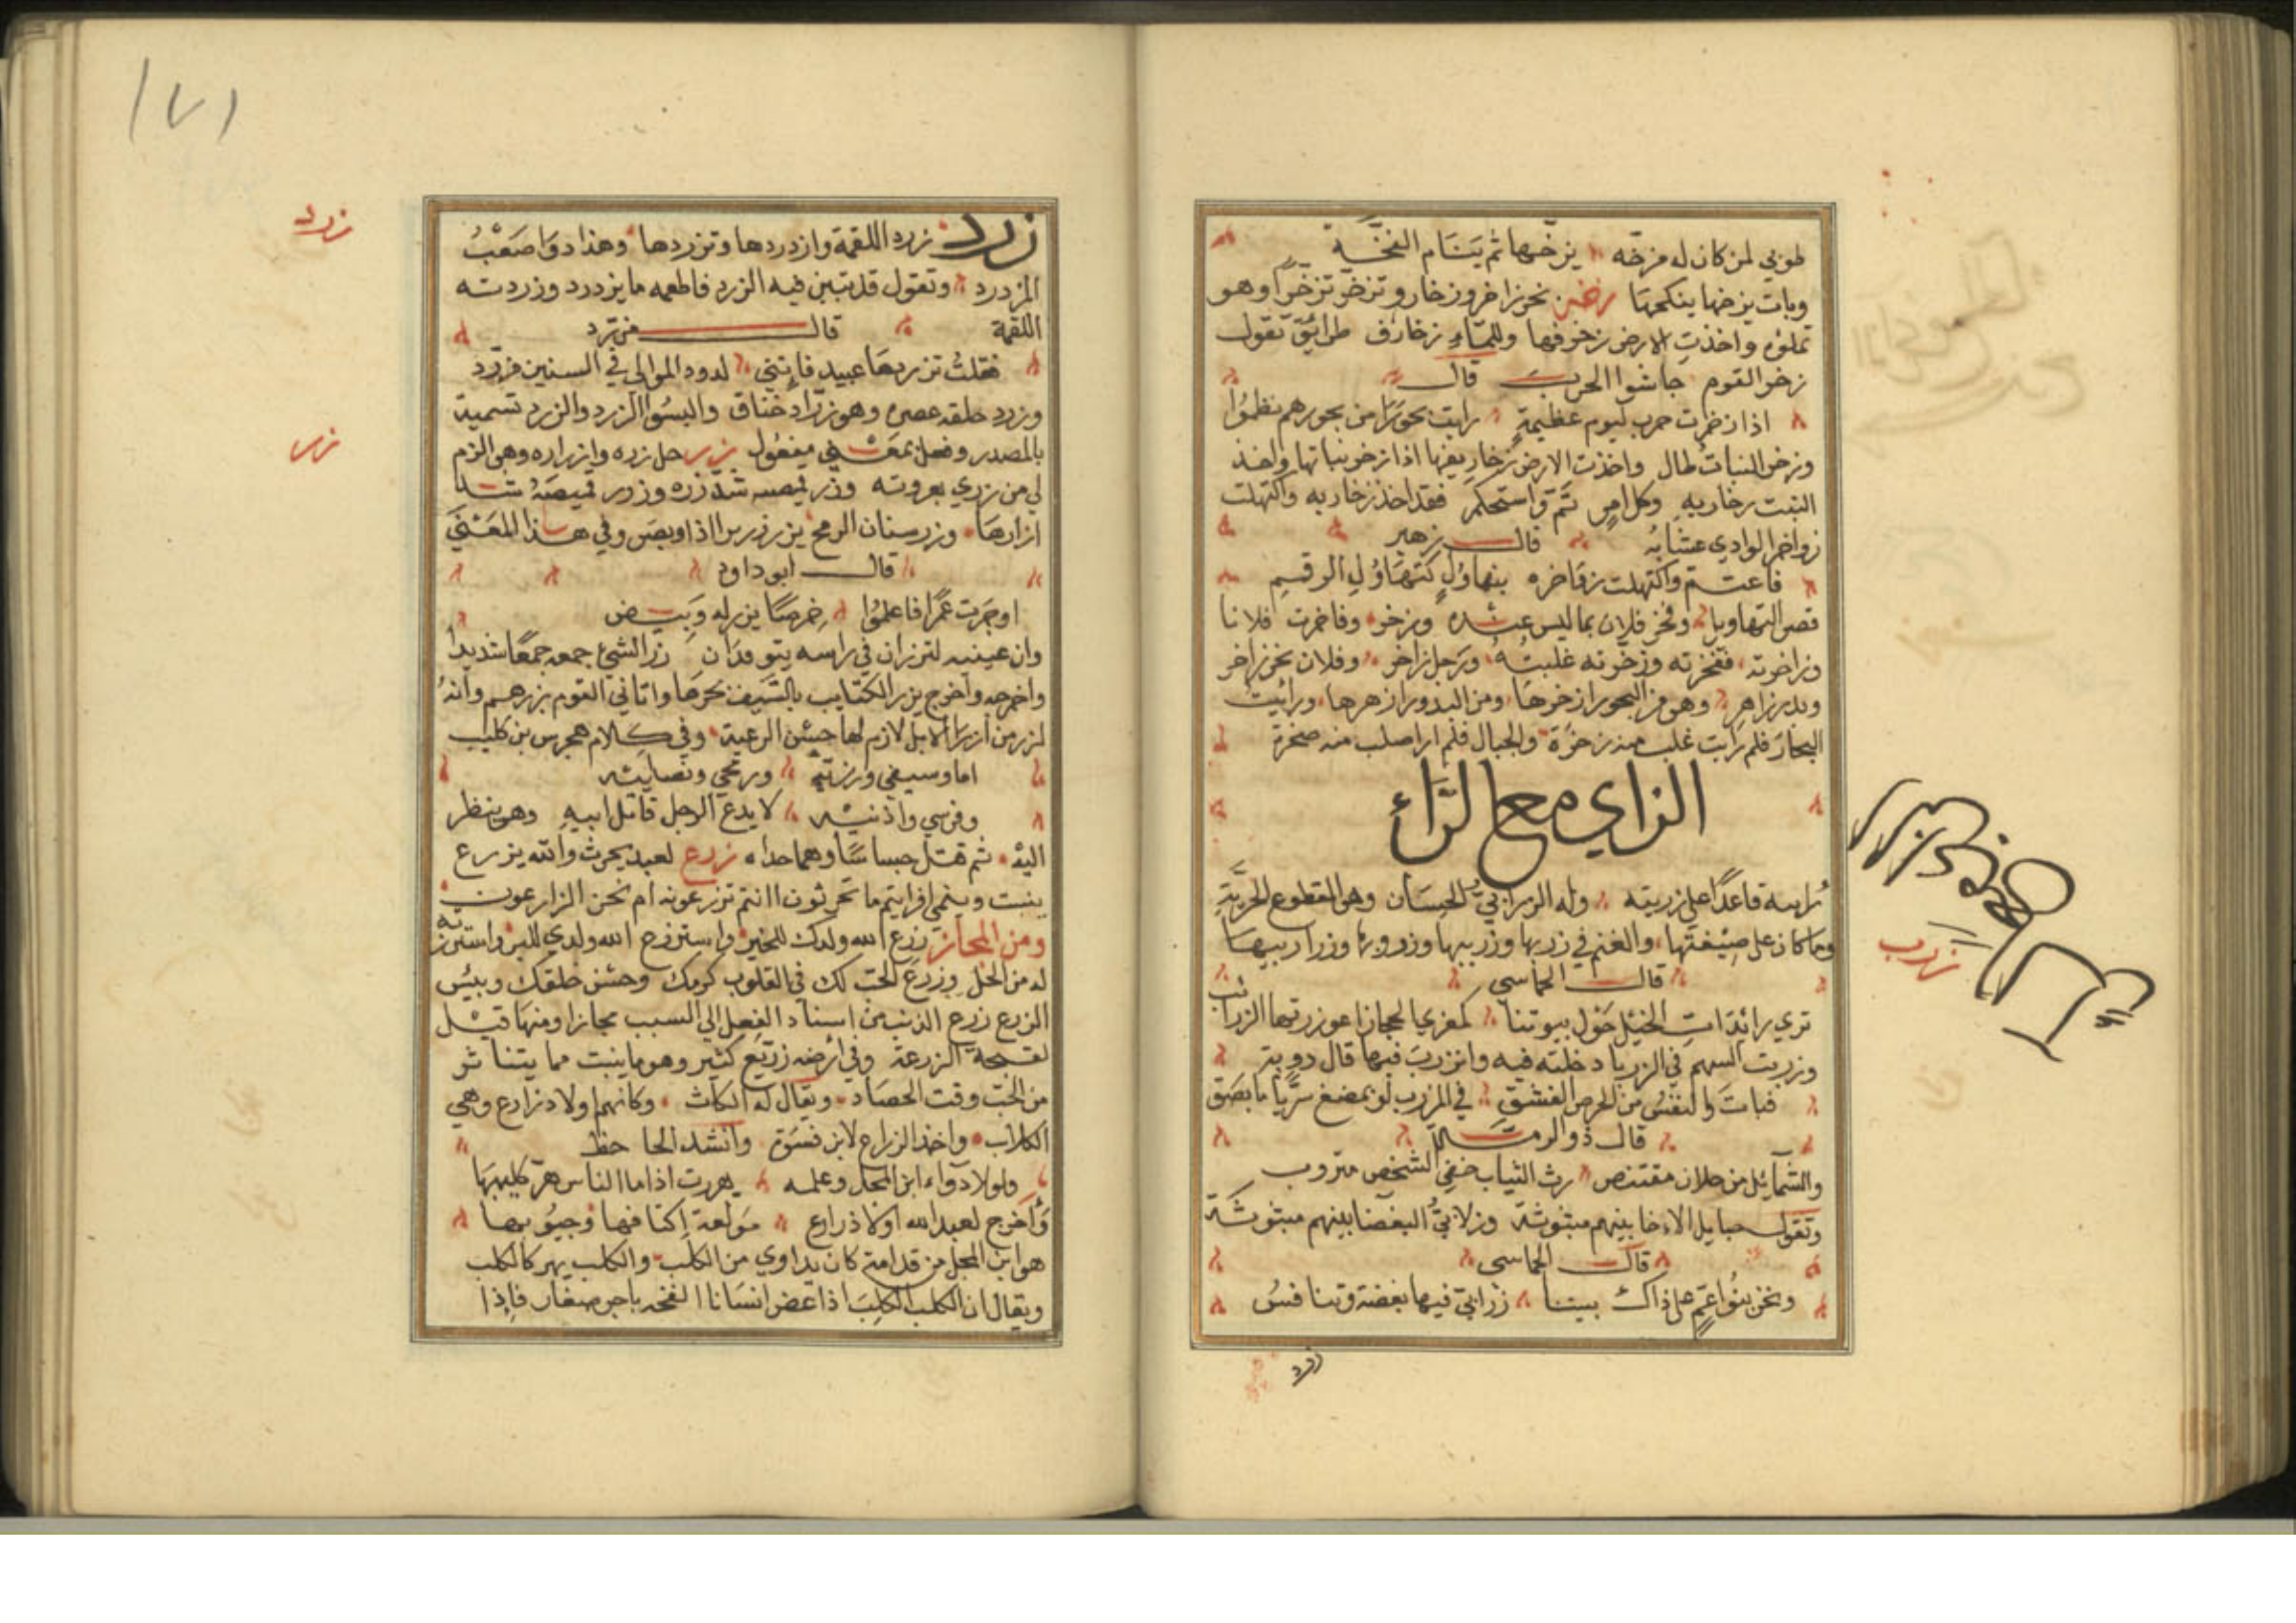 طوبي لمن كان له مزخه يزخها ثم ينام الفخه
وبات يزخها ينكحها زخر بحر زاخر وزخار وتزخر تزخرا وهو
تملؤه واخذت الارض زخرفها وللماء زخارف طرائق تقول
زخر القوم جاشوا الحرب قال
اذا زخرت حرب ليوم عظيمة رايت بحورا من بحورهم تطموا
وزخر النبات طال واخذت الارض زخاريفها اذا زخر نباتها واخذ
النبت زخاريه وكل امر تم واستحكم فقد اخذ زخاريه واكتهلت
زواخر الوادي عشابه قال زهير
فاعتم واكتهلت زواخره بتهاول كتهاول الرقم
قصر التهاويل وفخر فلان بما ليس عنده وزخر وفاخرت فلانا
وزاخرته ففخرته وزخرته غلبته ورجل زاخر وفلان بحر زاخر
وبدر زاهر وهو من البحور ازخرها ومن البدور ازهرها ورايت
البحار فلم ار ايت غلب منه زخرة والجبال فلم ار اصلب منه صخرة
الزاي مع الراء
رايته قاعدا على زربيته وله الزرابي الحسان وهو القطوع الحرية
وما كان على صنعتها والغنم في زربها وزريبها وزروبها وزرايبها
قال الحماسي
تري رائدات الخيل حول بيوتنا كمعزي الحجاز اعوزتها الزرائب
وزربت السهم في الزرب ادخلته فيه وانزرب فيها قال روبة
فبات والنفس من الحرص الفشق في الزرب لو يمضغ شريا ما بصق
قال ذو الرمة
والشمائل من جلان مقتنص رث الثياب خفي الشخص منزرب
وتقول حبايل الاخا بينهم مبثوثة وزرابي البغضا بينهم مبثوثة
قال الحماسي
ونحن بنوا عم على ذاك بيننا زرابي فيها بغضة وتنافس
زرد
زرب
١٧١
زرد زرد اللقمة وازدردها وتزردها وهذا دوا صعب
المزدرد وتقول قد تبين فيه الزرد فاطعمه ما يزدرد وزردته
اللقمة قال مزرد
فقلت تزردها عبيد فانني لدرد الموالي في السنين مزرد
وزرد حلقه عصره وهو زراد خناق والبسوا الزرد والزرد تسمية
بالمصدر وفعل بمعنى مفعول زرر حل زره وازراره وهو الزم
لي من زري بعروته وزر قميصه شد زره وزرر قميصه شد
ازرارها وزر سنان الرمح يزر زريرا اذا وبص وفي هذا المعنى
قال ابو داود
اوجرت عمرا فاعلموا خرصا يزر له وبيض
وان عينيه لتزران في راسه يتوقدان زر الشيء جمعه جمعا شديدا
واخرجه واخرج يزر الكتايب بالسيف نحرها واتاني القوم بزرهم وانه
لزر من ازرار الابل لازم لها حسن الرعية وفي كلام هجرس بن كليب
اما وسيفي وزريه ورمحي ونصليه
وفرسي واذنيه لا يدع الرجل قاتل ابيه وهو ينظر
اليه ثم قتل جساسا وهما حداه زرع لعبد يحرث والله يزرع
ينبت وينمي افرايتم ما تحرثون اانتم تزرعونه ام نحن الزارعون
ومن المجاز زرع الله ولدك للخير واستزرع الله ولدي للبر واسترزقه
له من الحل وزرع الحب لك في القلوب كرمك وحسن خلقك وبئس
الزرع زرع الذنب من اسناد الفعل الي السبب مجازا ومنها قيل
لفسحة الزرعة وفي ارضه زريع كثير وهو ما ينبت مما يتناثر
من الحب وقت الحصاد ويقال له الكاث وكانهم اولاد زارع وهي
الكلاب واخذ الزراع لابن فسوة وانشد الجاحظ
ولولا دواء ابن المحل وعلمه هررت اذا ما الناس هر كليبها
واخرج لعبد الله اولاد زارع مولعة اكتافها وجيوبها
هو ابن المحل من قدامة كان يداوي من الكلب والكلب يهر كالكلب
ويقال ان الكلب الكلب اذا عض انسانا القحه باجر صغار فاذا
زرد
زرر